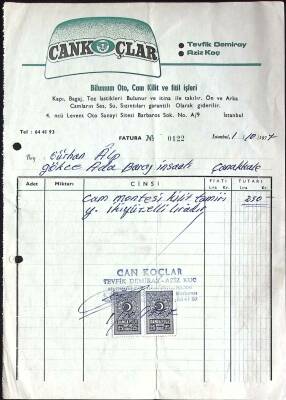 CANKOÇLAR
• Tevfik Demiray
• Aziz Koç
Bilumum Oto, Cam Kilit ve fitil işleri
Kapı, Bagaj, Toz lastikleri Bulunur ve itina ile takılır. Ön ve Arka
Camların Ses, Su, Sızıntıları garantili Olarak giderilir.
4. ncü Levent Oto Sanayi Sitesi Barbaros Sok. No. A/9 İstanbul
Tel : 64 41 93
FATURA № 0122
İstanbul, 1/10/1977
Bay Gürhan Alp
Gökçe Ada Baraj inşaatı Çanakkale
Adet Miktarı CİNSİ FİATI TUTARI
Lira Kr. Lira Kr.
Cam montesi kilit tamiri 250 -
y. ikiyüzelli liradır
CAN KOÇLAR
TEVFİK DEMİRAY - AZİZ KOÇ